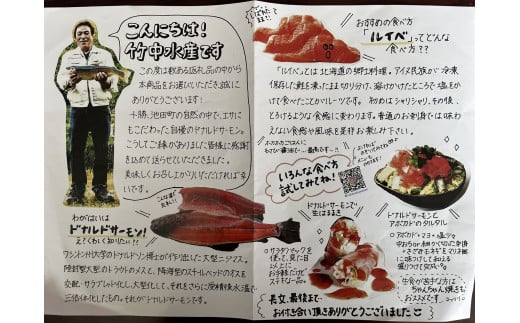 こんにちは!
竹中水産です
この度は数ある返礼品の中から
本商品をお選びいただき、誠に
ありがとうございます!
十勝、池田町の自然の中で、エサに
もこだわった自慢のドナルドサーモン。
こうしてご縁のありました皆様に感謝の
気持ちを込めて送らせていただきました。
美味しくお召し上がりいただければ幸
いです。
わがはいは
ドナルドサーモン!
えくわしく知りたい!!
ワシントン州大学のドナルドソン博士が作り出した大型ニジマス。
陸封型大型のトラウトのメスと、降海型のスチールヘッドのオスを
交配・サラブレッド化し大型化して、それをさらに受精後水温で
三倍体化したもの。それがドナルドサーモンです。
おすすめの食べ方
「ルイベ」ってどんな
食べ方??
「ルイベ」とは北海道の郷土料理。アイヌ民族が冷凍
保存した鮭を凍ったまま切り分け、溶けかけたところで塩をか
けて食べたことがルーツです。初めはシャリシャリ、その後、
とろけるような食感に変わります。普通のお刺身では味わ
えない食感や風味を是非お楽しみ下さい。
ホカホカごはんに
わさび醤油で…最高です!!
いろんな食べ方
試してみてね!
ドナルドサーモンで
生はるまき
サラダパックを
使って、見た目
以上に
お手軽なのに
ステキな一品。
ドナルドサーモンと
アボカドのタルタル
アボカド+マヨ+塩コショウ
盛りつけて完成。
生食が苦手な方は
ちゃんちゃん焼きも
おススメです
長文、最後まで
お付き合い頂きありがとうございました